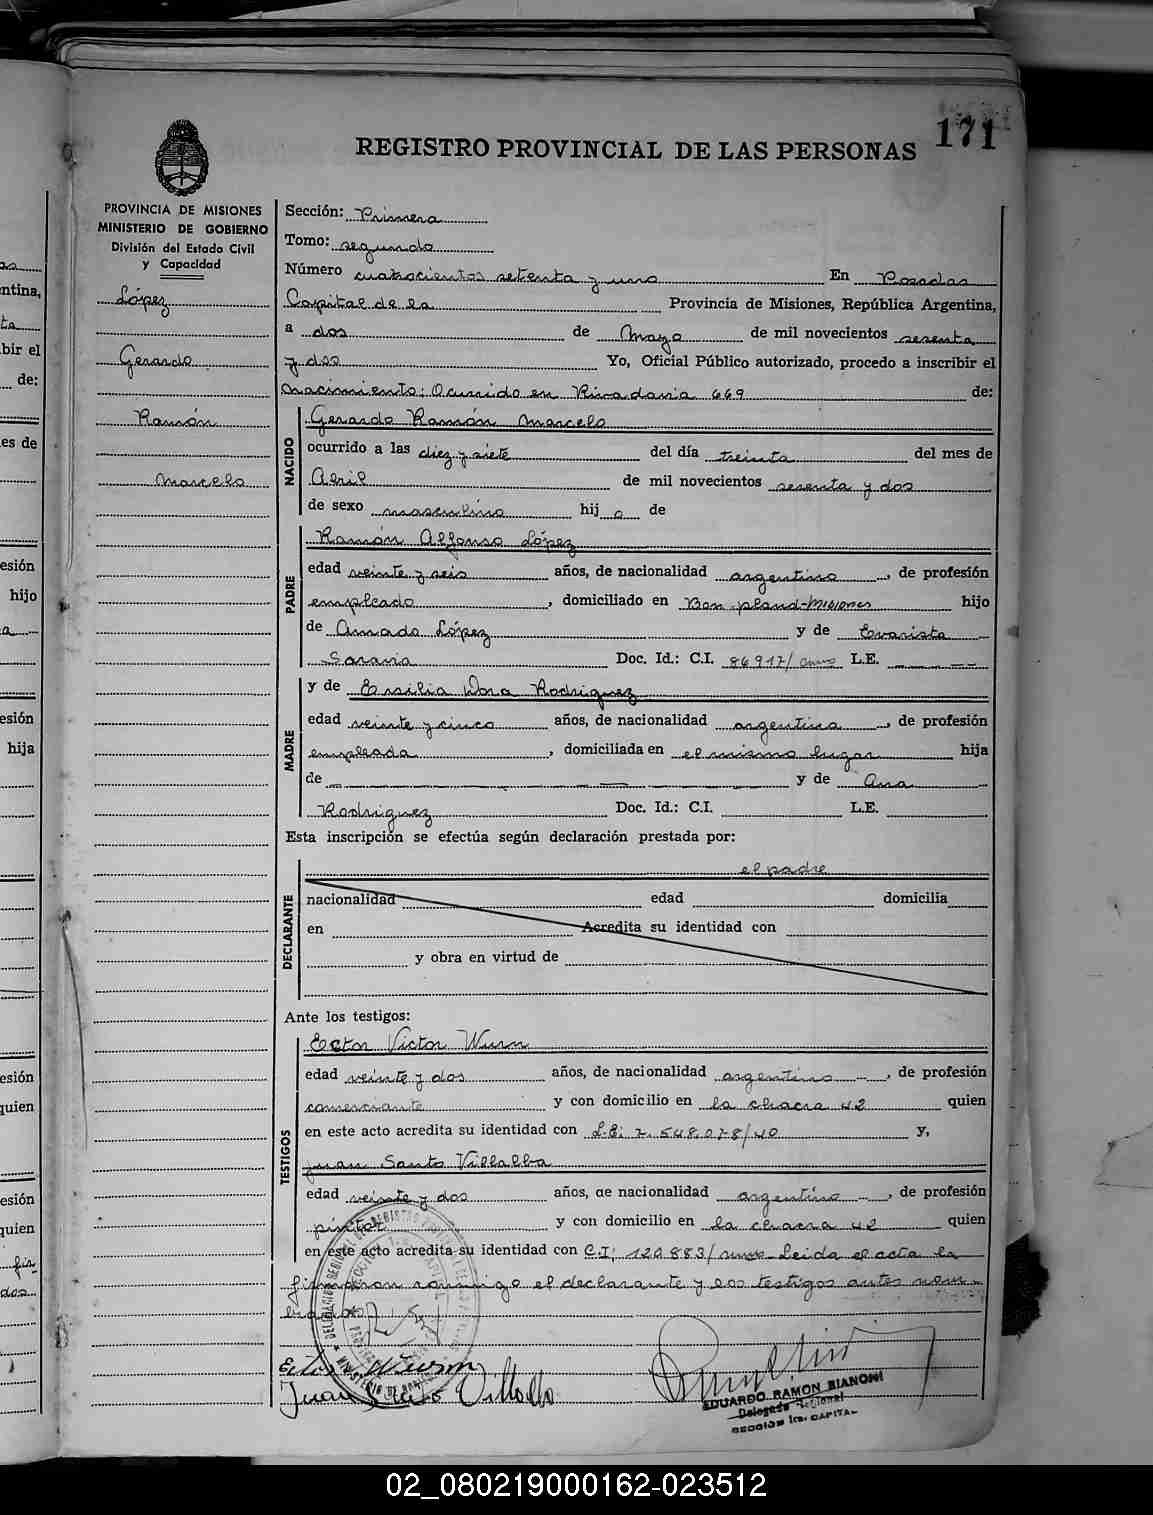 171
REGISTRO PROVINCIAL DE LAS PERSONAS
PROVINCIA DE MISIONES
MINISTERIO DE GOBIERNO
División del Estado Civil
y Capacidad
López
Gerardo
Ramón
Marcelo
Sección: Primera
Tomo: segundo
Número cuatrocientos setenta y uno En Posadas
Capital de la Provincia de Misiones, República Argentina,
a dos de Mayo de mil novecientos sesenta
y dos Yo, Oficial Público autorizado, procedo a inscribir el
nacimiento: Ocurrido en Rivadavia 669 de:
NACIDO
Gerardo Ramón Marcelo
ocurrido a las diez y siete del día treinta del mes de
Abril de mil novecientos sesenta y dos
de sexo masculino hij o de
PADRE
Ramón Alfonso López
edad veinte y seis años, de nacionalidad argentino, de profesión
empleado, domiciliado en Bonpland-Misiones hijo
de Amado López y de Evarista
Saravia Doc. Id.: C.I. 86917/ L.E.
MADRE
y de Ersilia Dora Rodriguez
edad veinte y cinco años, de nacionalidad argentina, de profesión
empleada, domiciliada en el mismo lugar hija
de y de Ana
Rodriguez Doc. Id.: C.I. L.E.
Esta inscripción se efectúa según declaración prestada por:
el padre
DECLARANTE
nacionalidad edad domicilia
en Acredita su identidad con
y obra en virtud de
Ante los testigos:
TESTIGOS
Ector Victor Wurn
edad veinte y dos años, de nacionalidad argentino, de profesión
comerciante y con domicilio en la chacra 42 quien
en este acto acredita su identidad con L.E: 7.548.078/40 y,
Juan Santo Villalba
edad veinte y dos años, de nacionalidad argentino, de profesión
pintor y con domicilio en la chacra 42 quien
en este acto acredita su identidad con C.I: 120.883/ Leida el acta la
firmaron conmigo el declarante y los testigos antes nom-
brados
Ector Wurn
Juan Santo Villalba
EDUARDO RAMON BIANONI
Delegado Regional
SECCION 1ra. CAPITAL
02_080219000162-023512